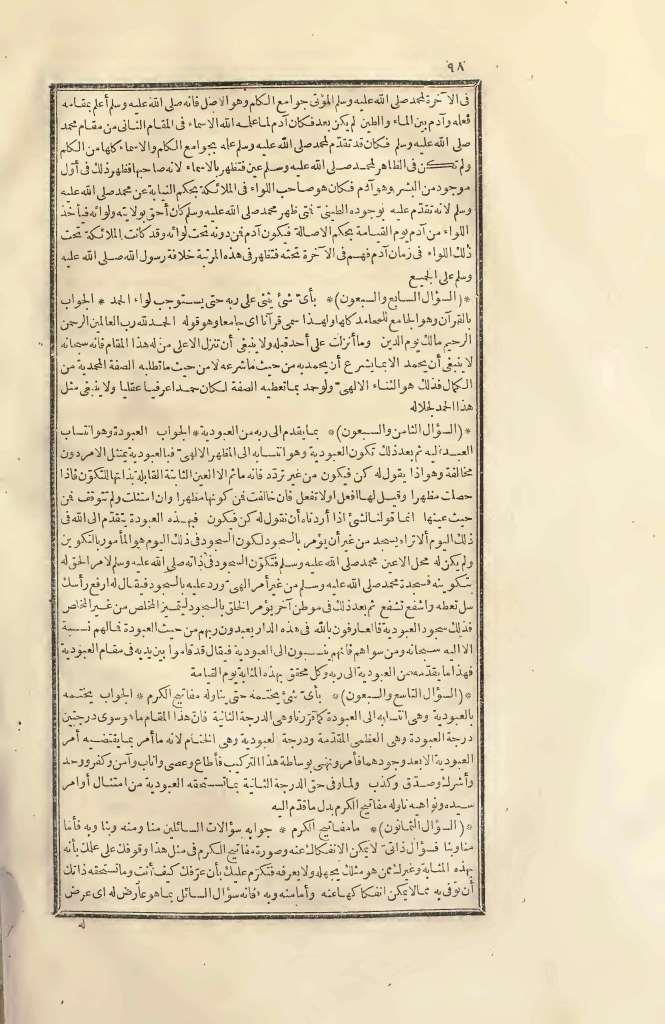 ٩٨
فى الآخرة لمحمد صلى الله عليه وسلم المؤتى جوامع الكلم وهو الاصل فانه صلى الله عليه وسلم أعلم بمقامه
فعله وآدم بين الماء والطين لم يكن بعد فكان آدم لما علمه الله الاسماء فى المقام الثانى من مقام محمد
صلى الله عليه وسلم فكان قد تقدّم لمحمد صلى الله عليه وسلم علمه بجوامع الكلم والاسماء كلها من الكلم
ولم تكن فى الظاهر لمحمد صلى الله عليه وسلم عين فتظهر بالاسماء لانه صاحبها فظهر ذلك فى أوّل
موجود من البشر وهو آدم فكان هو صاحب اللواء فى الملائكة بحكم النيابة عن محمد صلى الله عليه
وسلم لانه تقدّم عليه بوجوده الطينى فتى ظهر محمد صلى الله عليه وسلم كان أحق بولايته ولوائه فيأخذ
اللواء من آدم يوم القيامة بحكم الاصالة فيكون آدم فمن دونه تحت لوائه وقد كانت الملائكة تحت
ذلك اللواء فى زمان آدم فهم فى الآخرة تحته فتظهر فى هذه المرتبة خلافة رسول الله صلى الله عليه
وسلم على الجميع
*(السؤال السابع والسبعون)* بأىّ شئ يثنى على ربه حتى يستوجب لواء الحمد * الجواب
بالقرآن وهو الجامع للمحامد كلها ولهذا سمى قرآنا اى جامعا وهو قوله الحمد لله رب العالمين الرحمن
الرحيم مالك يوم الدين وما أنزلت على أحد قبله ولا ينبغى أن تنزل الا على من له هذا المقام فانه سبحانه
لا ينبغى أن يحمد الا بما يشرع أن يحمد به من حيث ما شرعه لا من حيث ما تطلبه الصفة المحمدية من
الكمال فذلك هو الثناء الالهىّ ولو حمد بما تعطيه الصفة لكان حمدا عرفيا عقليا ولا ينبغى مثل
هذا الحمد لجلاله
*(السؤال الثامن والسبعون)* بما يقدم الى ربه من العبودية * الجواب العبودة وهو انتساب
العبد اليه ثم بعد ذلك تكون العبودية وهو انتسابه الى المظهر الالهىّ فبالعبودية يمتثل الامر دون
مخالفة وهو اذا يقول له كن فيكون من غير تردّد فانه ما ثم الا العين الثابتة القابلة بذاتها للتكوّن فاذا
حصلت مظهرا وقيل لها افعل او لا تفعل فان خالفت فمن كونها مظهرا وان امتثلت ولم تتوقف فمن
حيث عينها انما قولنا لشئ اذا أردناه أن نقول له كن فيكون فبهذه العبودة يتقدّم الى الله فى
ذلك اليوم ألا تراه يسجد من غير أن يؤمر بالسجود لكون السجود فى ذلك اليوم هو المأمور بالتكوين
ولم يكن له محل الاعين محمد صلى الله عليه وسلم فتكوّن السجود فى ذاته صلى الله عليه وسلم لامر الحق له
بتكوينه فسجد به محمد صلى الله عليه وسلم من غير أمر الهىّ ورد عليه بالسجود فيقال له ارفع رأسك
سل تعطه واشفع تشفع ثم بعد ذلك فى موطن آخر يؤمر الخلق بالسجود ليتميز المخلص من غير المخلص
فذلك سجود العبودية فالعارفون بالله فى هذه الدار يعبدون ربهم من حيث العبودة فما لهم نسبة
الا اليه سبحانه ومن سواهم فانهم ينسبون الى العبودية فيقال قد قاموا بين يديه فى مقام العبودية
فهذا ما يقدّمه من العبودية الى ربه وكل محقق بهذه المثابة يوم القيامة
*(السؤال التاسع والسبعون)* بأىّ شئ يختمه حتى يناوله مفاتيح الكرم * الجواب يختمه
بالعبودية وهى انتسابه الى العبودة كما قررناه وهى الدرجة الثانية فانّ هذا المقام ما هو سوى درجتين
درجة العبودة وهى العظمى المتقدّمة ودرجة العبودية وهى الختام لانه ما أمر بما يقتضيه أمر
العبودية الا بعد وجودهما فأمر ونهى بوساطة هذا التركيب فأطاع وعصى وأناب وآمن وكفر ووحد
وأشرك وصدّق وكذب ولما وفى حق الدرجة الثانية بما تستحقه العبودية من امتثال أوامر
سيده ونواهيه ناوله مفاتيح الكرم بدل ما قدم اليه
*(السؤال الثمانون)* ما مفاتيح الكرم * جوابه سؤالات السائلين منا ومنه وبنا وبه فأما
منا وبنا فسؤال ذاتىّ لا يمكن الانفكاك عنه وصورة مفاتيح الكرم فى مثل هذا وقوفك على علمك بأنه
بهذه المثابة وغيرك ممن هو مثلك يجهله ولا يعرفه فتكرّم عليك بأن عرّفك كيف أنت وما تستحقه ذاتك
أن توفى به مما لا يمكن انفكاكها عنه وأما منه وبه فانه سؤال السائل بما هو عارض له اى عرض
له